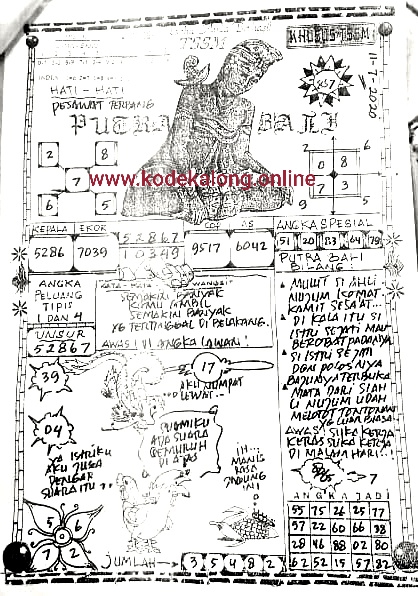 KHUSUS-TSSM
HATI - HATI
PESAWAT TERBANG
11-7-2020
PUTRA BALI
www.kodekalong.online
2 8
7
6 5
2 6
0 8
7 3
9 5
KEPALA EKOR
5286 7039
52867
10349
COP AS
9517 6042
ANGKA SPESIAL
51 20 33 64 79
PUTRA BALI
BILANG
ANGKA
PELUANG
TIPIS
1 DAN 4
UNSUR
52867
KATA-KATA WANGSIT
SEMAKIN BANYAK
KAMU AMBIL
SEMAKIN BANYAK
YG TERTINGGAL DI BELAKANG.
AWAS! DI ANGKA LAWAN!
39
17
AKU NUMPAT
LEWAT...
04
SUAMIKU
ADA SUARA
GEMURUH
DI APA
YA ISTRIKU
AKU JUGA
DENGAR
SUARA ITU..
IH..
MANIS
RASA
JAGUNG
INI
MULUT SI AHLI
NUJUM KOMAT
KAMIT SESAAT...
DI KALA ITU SI
ISTRI SEJATI MAU
BEROBAT PADANYA
SI ISTRI SEJATI
DGN POLOSNYA
BAJUNYA TERBUKA
MATA DARI SI AH
LI NUJUM UDAH
MELOTOT TONTONAN
YG LUAR BIASA
AWAS SUKA KERJA
KERAS SUKA KERJA
DI MALAM HARI..!
7
5 6
7 2
ANGKA JADI
55 75 26 25 77
57 22 60 66 38
28 46 88 02 80
62 52 15 57 82
JUMLAH 3 5 4 8 2